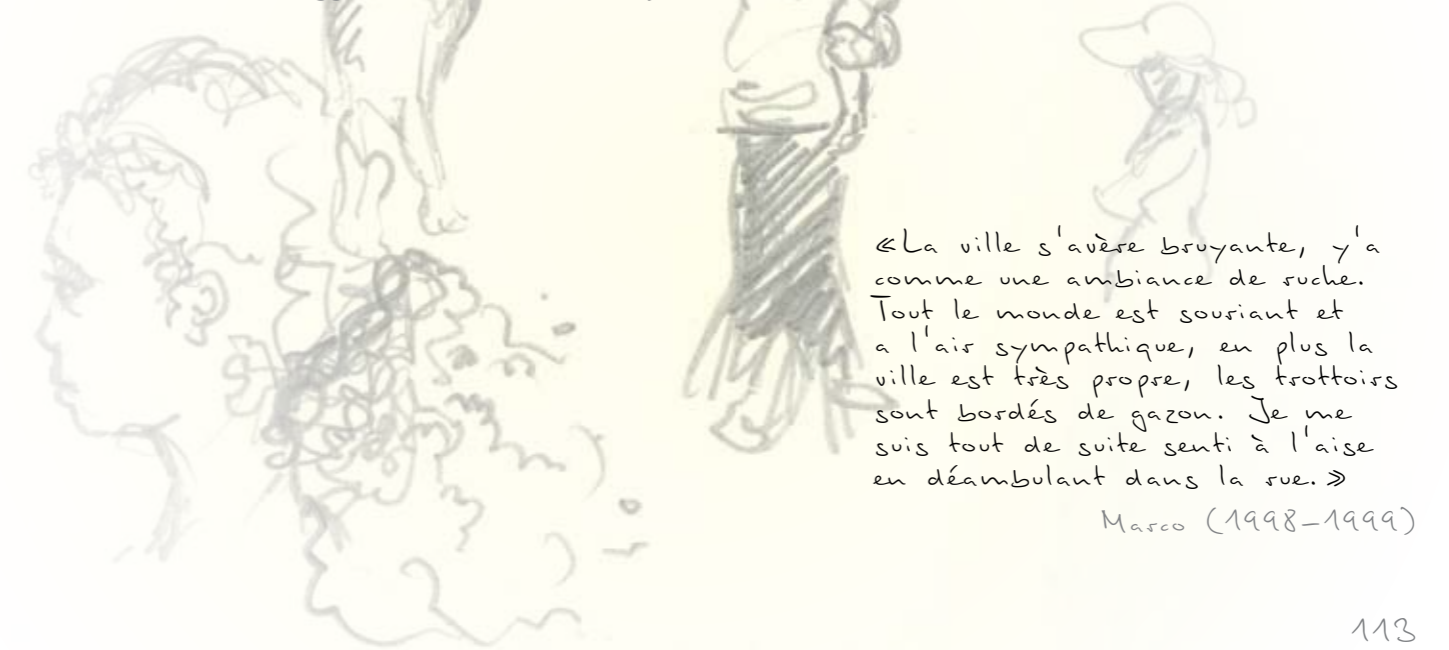 «La ville s'avère bruyante, y'a
comme une ambiance de ruche.
Tout le monde est souriant et
a l'air sympathique, en plus la
ville est très propre, les trottoirs
sont bordés de gazon. Je me
suis tout de suite senti à l'aise
en déambulant dans la rue.»
Marco (1998-1999)
113